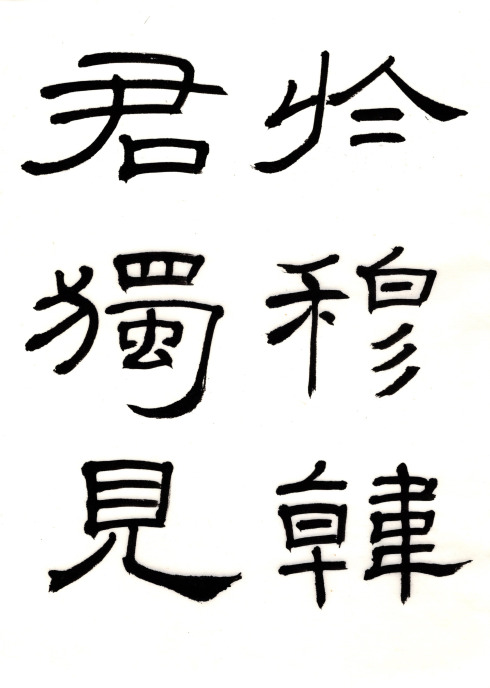 於穆韓
君獨見